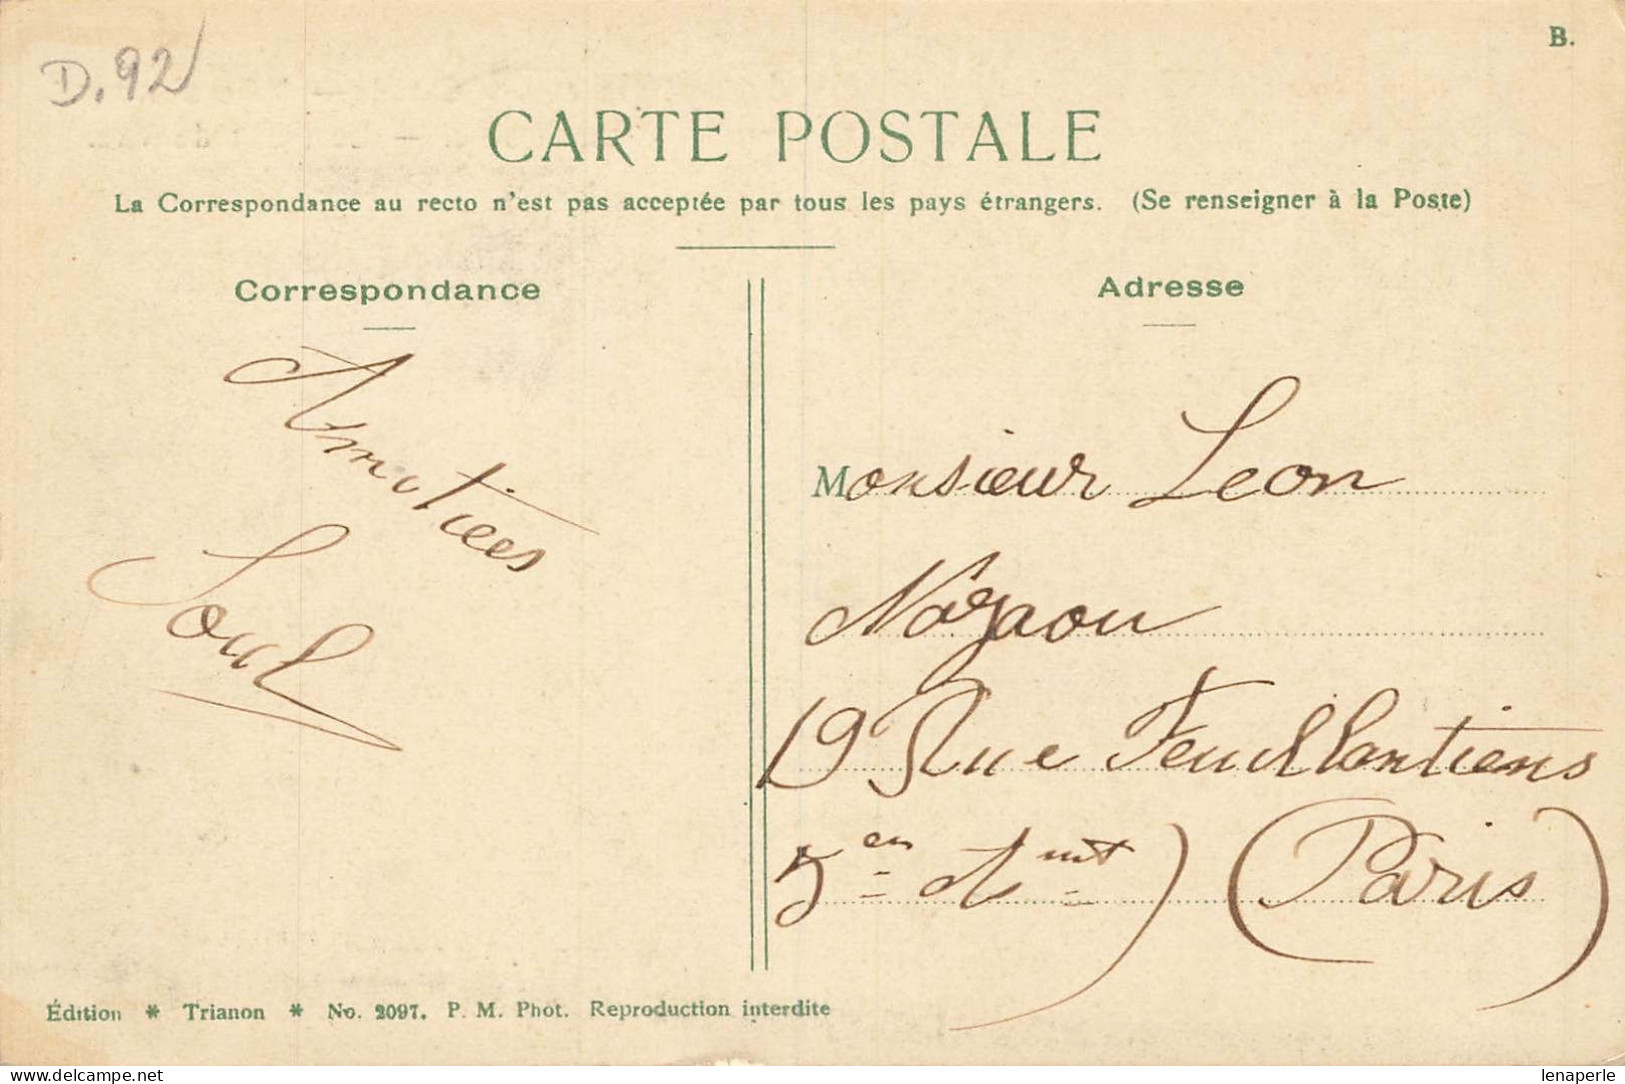 D. 92
B.
CARTE POSTALE
La Correspondance au recto n'est pas acceptée par tous les pays étrangers. (Se renseigner à la Poste)
Correspondance
Adresse
Amitiées
Monsieur Leon
19 Rue Feuillantiens
5en Amt) (Paris)
Édition * Trianon * No. 2097. P. M. Phot. Reproduction interdite
www.delcampe.net
lenaperle